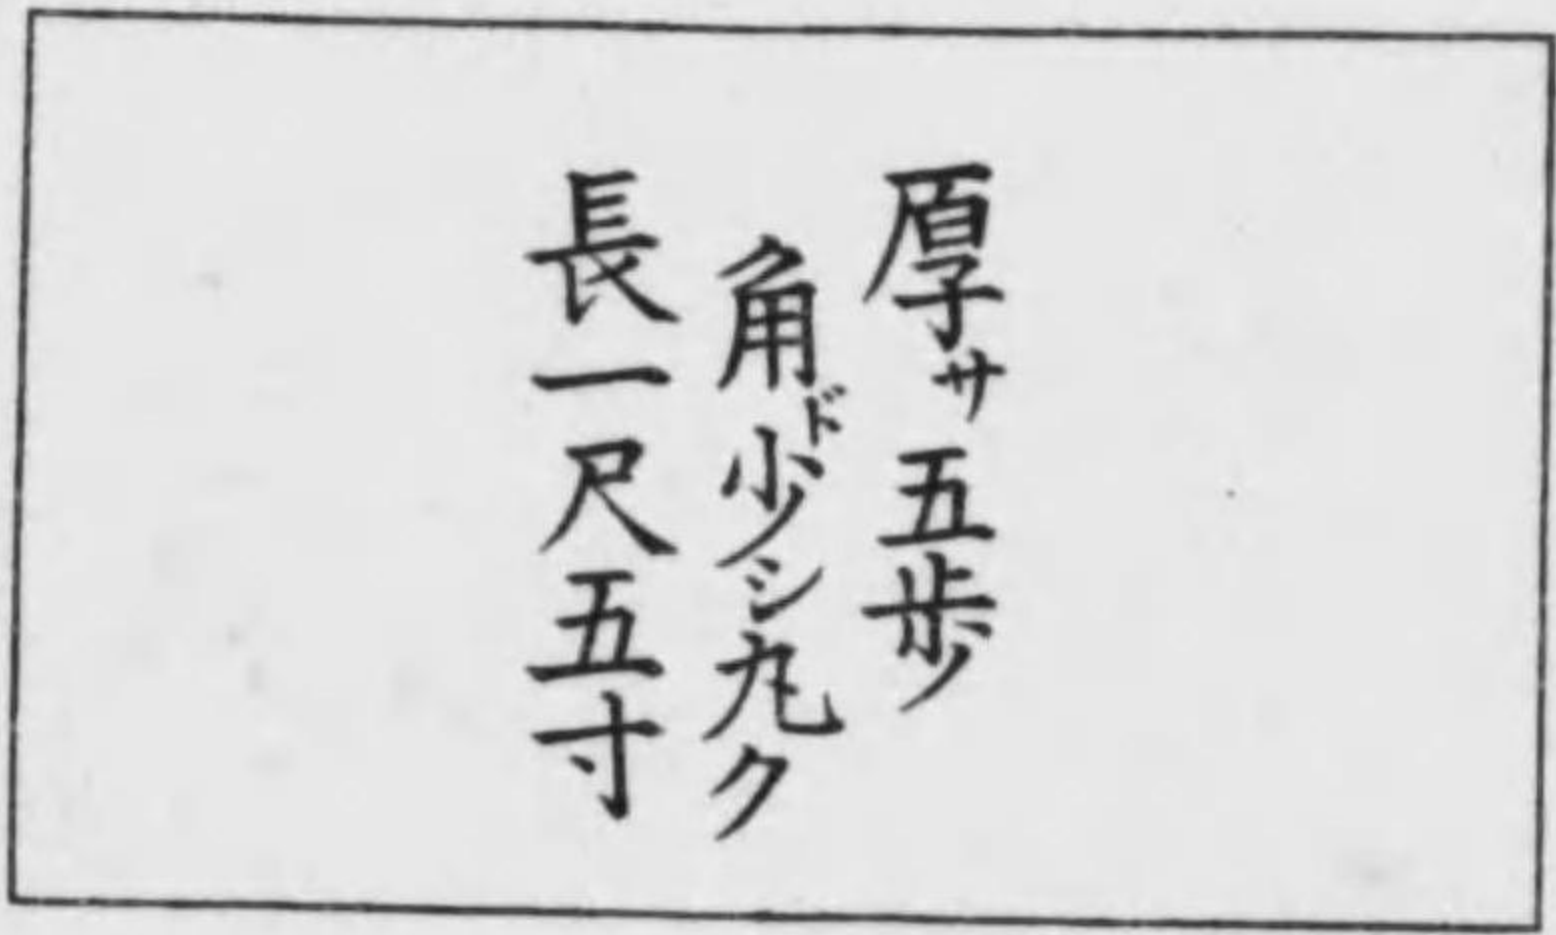 厚サ五歩
角ド少シ丸ク
長一尺五寸